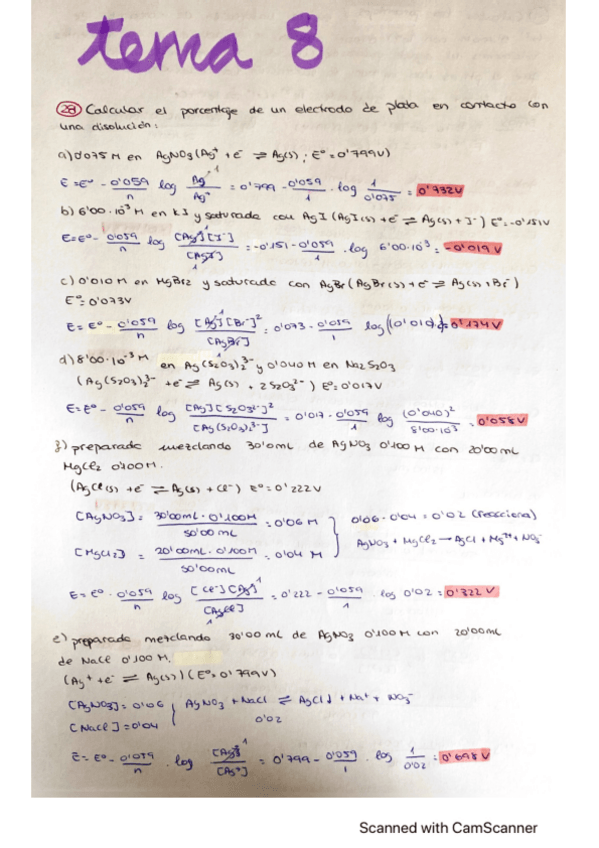 tema 8
28 Calcular el porcentaje de un electrodo de plata en contacto con
una disolución:
a) 0'075 M en AgNO3 (Ag+ + e- ⇌ Ag(s); Eº = 0'799V)
E = Eº - 0'059/n log Ag/Ag+ = 0'799 - 0'059/1 · log 1/0'075 = 0'732V
b) 6'00·10-3 M en KI y saturada con AgI (AgI(s) + e- ⇌ Ag(s) + I-) Eº = -0'151V
E = Eº - 0'059/n log [Ag][I-]/[AgI] = -0'151 - 0'059/1 · log 6'00·10-3 = -0'019V
c) 0'010 M en MgBr2 y saturado con AgBr (AgBr(s) + e- ⇌ Ag(s) + Br-)
Eº = 0'073V
E = Eº - 0'059/n log [Ag][Br-]2/[AgBr] = 0'073 - 0'059/1 log = 0'174V
d) 8'00·10-3 M en Ag(S2O3)2 3- y 0'040 M en Na2S2O3
(Ag(S2O3)2 3- + e- ⇌ Ag(s) + 2S2O3 2-) Eº = 0'017V
E = Eº - 0'059/n log [Ag][S2O3 2-]2/[Ag(S2O3)2 3-] = 0'017 - 0'059/1 log (0'040)2/8'00·10-3 = 0'058V
f) preparada mezclando 30'0 mL de AgNO3 0'100 M con 20'00 mL
MgCl2 0'100 M.
(AgCl(s) + e- ⇌ Ag(s) + Cl-) Eº = 0'222V
[AgNO3] = 30'00mL · 0'100M/50'00 mL = 0'06 M } 0'06 - 0'04 = 0'02 (reacciona)
[MgCl2] = 20'00mL · 0'100M/50'00mL = 0'04 M } AgNO3 + MgCl2 → AgCl + Mg2+ + NO3-
E = Eº - 0'059/n log [Cl-][Ag]/[AgCl] = 0'222 - 0'059/1 · log 0'02 = 0'322V
e) preparada mezclando 30'00 mL de AgNO3 0'100 M con 20'00mL
de NaCl 0'100 M.
(Ag+ + e- ⇌ Ag(s)) (Eº = 0'799V)
[AgNO3] = 0'06 } AgNO3 + NaCl ⇌ AgCl↓ + Na+ + NO3-
[NaCl] = 0'04 } 0'02
E = Eº - 0'059/n · log [Ag]/[Ag+] = 0'799 - 0'059/1 · log 1/0'02 = 0'698V
Scanned with CamScanner